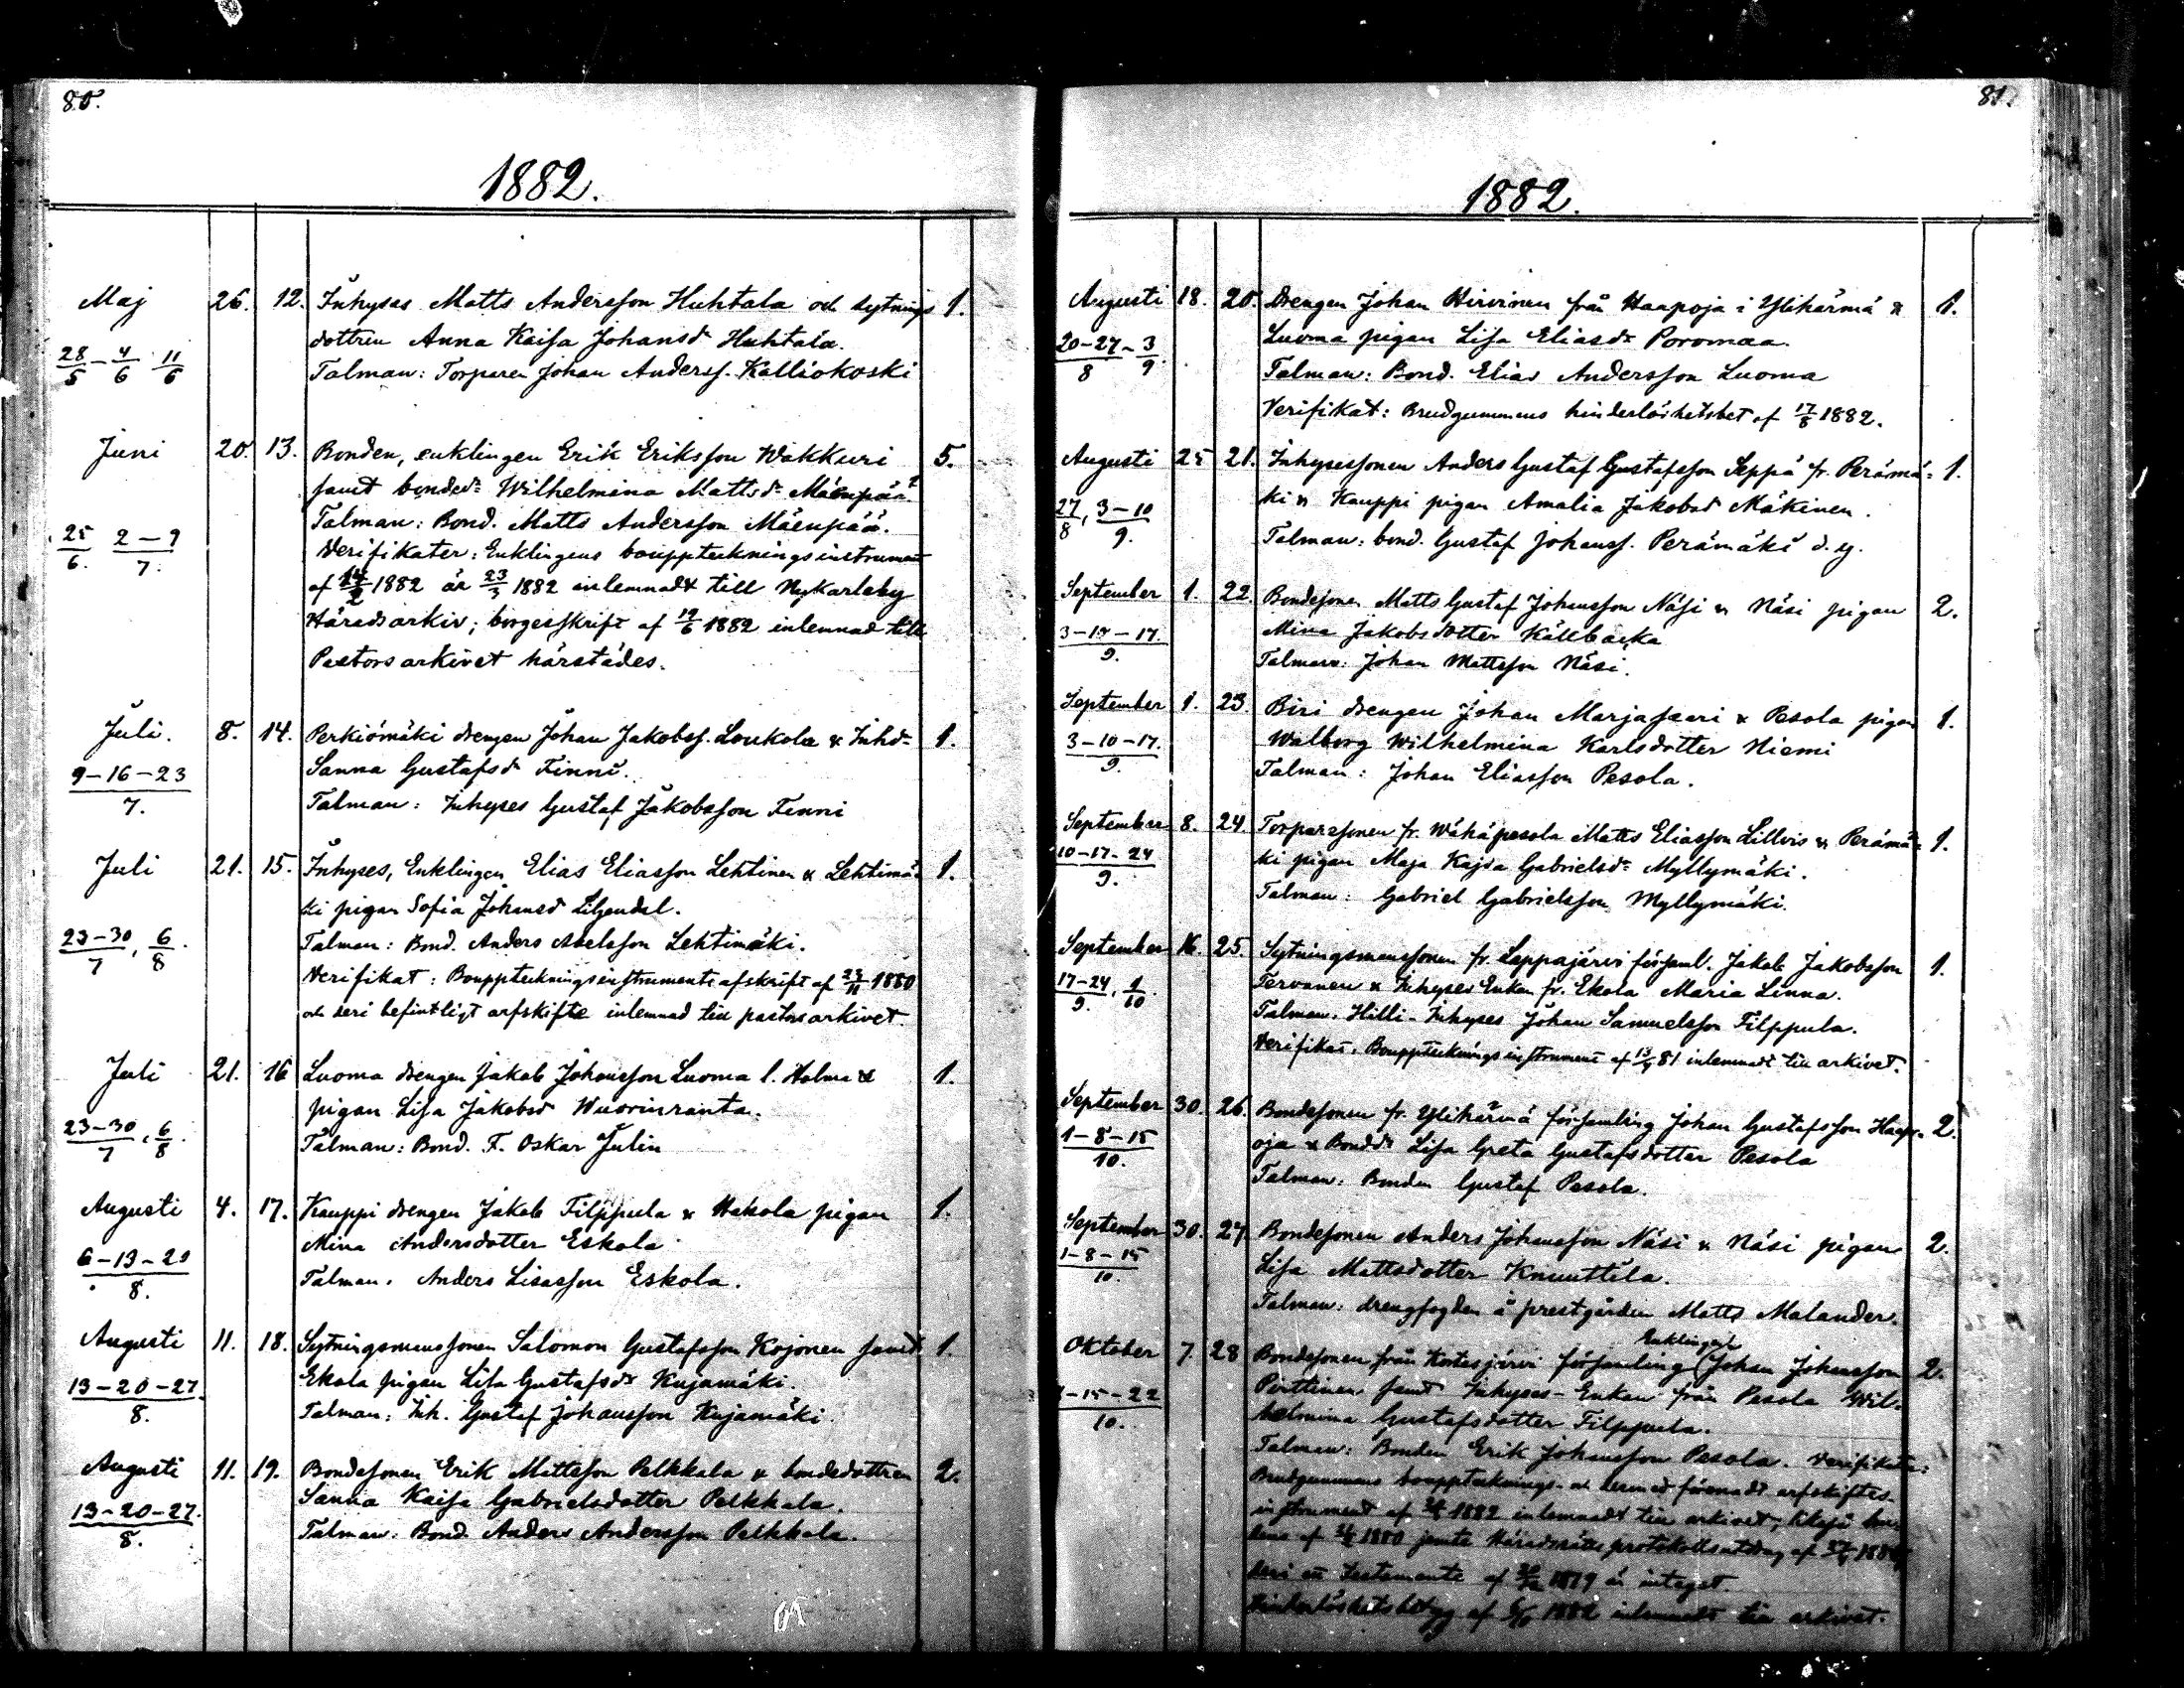 80.
1882.
Maj 26. 12. Inhyses Matts Andersson Huhtala och sytnings 1.
dottren Anna Kaisa Johansdr Huhtala.
28/5 - 4/6 11/6
Talman: Torparen Johan Anderss. Kalliokoski
Juni 20. 13. Bonden, enklingen Erik Eriksson Wakkuri 5.
samt bondedr Wilhelmina Mattsdr Mäenpää.
Talman: Bond. Matts Andersson Mäenpää.
25/6. 2-9/7.
Verifikater: Enklingens bouppteckningsinstrument
af 1882 är 23/3 1882 inlemnadt till Nykarleby
Häradsarkiv; borgesskrift af 19/6 1882 inlemnad till
Pastorsarkivet härstädes.
Juli. 8. 14. Perkiömäki drengen Johan Jakobss. Loukola & Inhdr 1.
Sanna Gustafsdr Finni.
9-16-23/7.
Talman: Inhyses Gustaf Jakobsson Finni
Juli 21. 15. Inhyses, Enklingen Elias Eliasson Lehtinen & Lehtimä- 1.
ki pigan Sofia Johansdr Liljendal.
23-30/7, 6/8.
Talman: Bond. Anders Abelsson Lehtimäki.
Verifikat: Bouppteckningsinstruments afskrift af 1880
och deri befintligt arfskifte inlemnad till pastorsarkivet.
Juli 21. 16 Luoma drengen Jakob Johansson Luoma l. Holma & 1.
pigan Lisa Jakobsdr Wuorinranta.
23-30/7, 6/8.
Talman: Bond. F. Oskar Julin
Augusti 4. 17. Kauppi drengen Jakob Filppula & Hakola pigan 1.
Mina Andersdotter Eskola
6-13-20/8.
Talman. Anders Lisasson Eskola.
Augusti 11. 18. Sytningsmanssonen Salomon Gustafsson Kojonen samt 1.
Ekola pigan Lisa Gustafsdr Kujamäki.
13-20-27/8.
Talman: Inh. Gustaf Johansson Kujamäki.
Augusti 11. 19. Bondesonen Erik Mattsson Pelkkala & bondedottren 2.
Sanna Kaisa Gabrielsdotter Pelkkala.
13-20-27./8.
Talman: Bond. Anders Andersson Pelkkala.
81.
1882.
Augusti 18. 20. Drengen Johan Hirvinen från Haapoja i Ylihärmä & 1.
Luoma pigan Lisa Eliasdr Poromaa.
20-27/8 - 3/9.
Talman: Bond. Elias Andersson Luoma
Verifikat: Brudgummens hinderlöshetsbet af 17/8 1882.
Augusti 25 21. Inhysessonen Anders Gustaf Gustafsson Seppä fr. Perämä- 1.
ki & Kauppi pigan Amalia Jakobsd Mäkinen.
27/8, 3-10/9.
Talman: bond. Gustaf Johanss. Perämäki d. y.
September 1. 22. Bondesonen Matts Gustaf Johansson Näsi & Näsi pigan 2.
Mina Jakobsdotter Källbacka
3-10-17./9.
Talman: Johan Mattsson Näsi.
September 1. 23. Biri drengen Johan Marjasaari & Pesola pigan 1.
Walborg Wilhelmina Karlsdotter Niemi
3-10-17./9.
Talman: Johan Eliasson Pesola.
September 8. 24 Torparesonen fr. Wähäpesola Matts Eliasson Lillvis & Perämä- 1.
10-17-24/9.
ki pigan Maja Kajsa Gabrielsdr Myllymäki.
Talman: Gabriel Gabrielsson Myllymäki.
September 16. 25. Sytningsmanssonen fr. Lappajärvi församl. Jakob Jakobsson 1.
17-24/9., 1/10.
Tervonen & Inhyses Enkan fr. Ekola Maria Linna.
Talman. Hilli-Inhyses Johan Samuelsson Filppula.
Verifikat. Bouppteckningsinstrument af 81 inlemnadt till arkivet.
September 30. 26. Bondesonen fr. Ylihärmä församling Johan Gustafsson Haap- 2.
oja & Bonddr Lisa Greta Gustafsdotter Pesola
1-8-15/10.
Talman: Bonden Gustaf Pesola.
September 30. 27 Bondesonen Anders Johansson Näsi & Näsi pigan 2.
1-8-15/10.
Lisa Mattsdotter Knuuttila.
Talman: drengfogden å prestgården Matts Malander.
Oktober 7. 28 Bondesonen från Kortesjärvi församling Enklingen Johan Johansson 2.
Pirttinen samt Inhyses-Enkan från Pesola Wil-
-15-22/10.
helmina Gustafsdotter Filppula.
Talman: Bonden Erik Johansson Pesola. Verifikater:
Brudgummens boupptecknings- och dermed förenadt arfskiftes-
instrument af 1882 inlemnadt till arkivet;
af 1880 jemte Häradsrätts protokollsutdrag af
deri ett testamente af 1879 är intaget.
Hinderlöshetsbetyg af 1882 inlemnadt till arkivet.